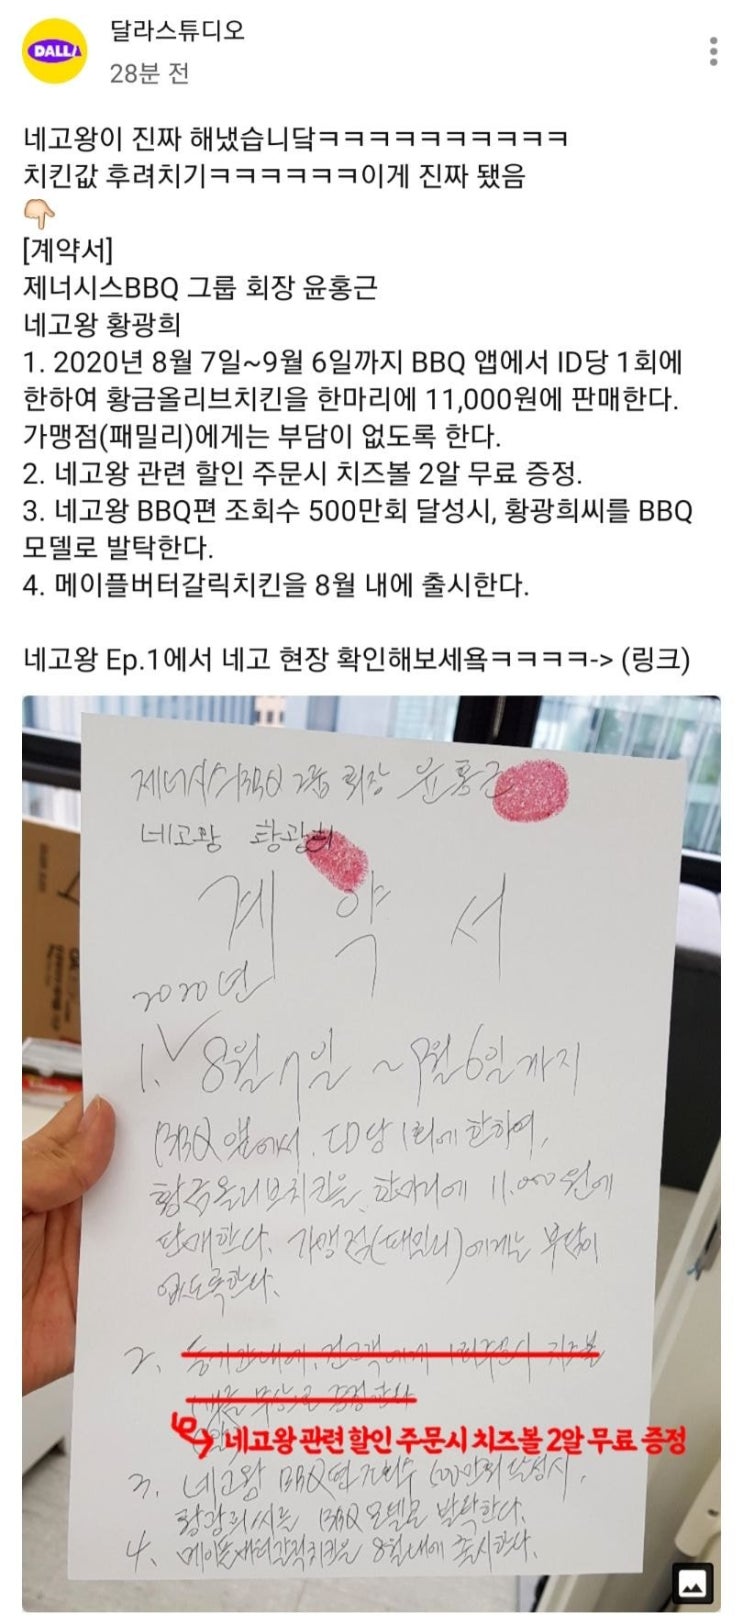 DALLA
달라스튜디오
28분 전
네고왕이 진짜 해냈습니닼ㅋㅋㅋㅋㅋㅋㅋㅋㅋㅋ
치킨값 후려치기ㅋㅋㅋㅋㅋㅋ이게 진짜 됐음
[계약서]
제너시스BBQ 그룹 회장 윤홍근
네고왕 황광희
1. 2020년 8월 7일~9월 6일까지 BBQ 앱에서 ID당 1회에
한하여 황금올리브치킨을 한마리에 11,000원에 판매한다.
가맹점(패밀리)에게는 부담이 없도록 한다.
2. 네고왕 관련 할인 주문시 치즈볼 2알 무료 증정.
3. 네고왕 BBQ편 조회수 500만회 달성시, 황광희씨를 BBQ
모델로 발탁한다.
4. 메이플버터갈릭치킨을 8월 내에 출시한다.
네고왕 Ep.1에서 네고 현장 확인해보세욬ㅋㅋㅋㅋ-> (링크)
제너시스BBQ 그룹 회장 윤홍근
네고왕 황광희
계약서
2020년
1. 8월 7일 ~ 9월 6일까지
BBQ 앱에서, ID당 1회에 한하여,
황금올리브치킨을, 한마리에 11,000원에
판매한다. 가맹점(패밀리)에게는 부담이
없도록한다.
2. 동기간내에, 전고객에게 1회주문시 치즈볼
무상으로 증정한다
네고왕 관련 할인 주문시 치즈볼 2알 무료 증정
3. 네고왕 BBQ편 조회수 500만회 달성시,
황광희씨를 BBQ 모델로 발탁한다.
4. 메이플버터갈릭치킨을 8월내에 출시한다.